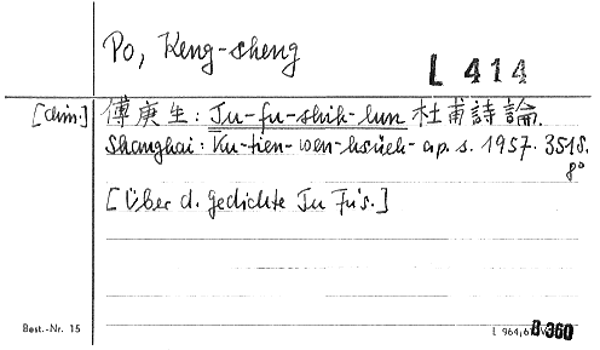 Po, Keng-sheng
L 414
[chin.] 傅庚生: Tu-fu-shih-lun 杜甫詩論.
Shanghai: Ku-tien-wen-hsüeh- cp. s. 1957. 351 S.
8°
[Über d. Gedichte Tu Fu's.]
Best.-Nr. 15
B 360